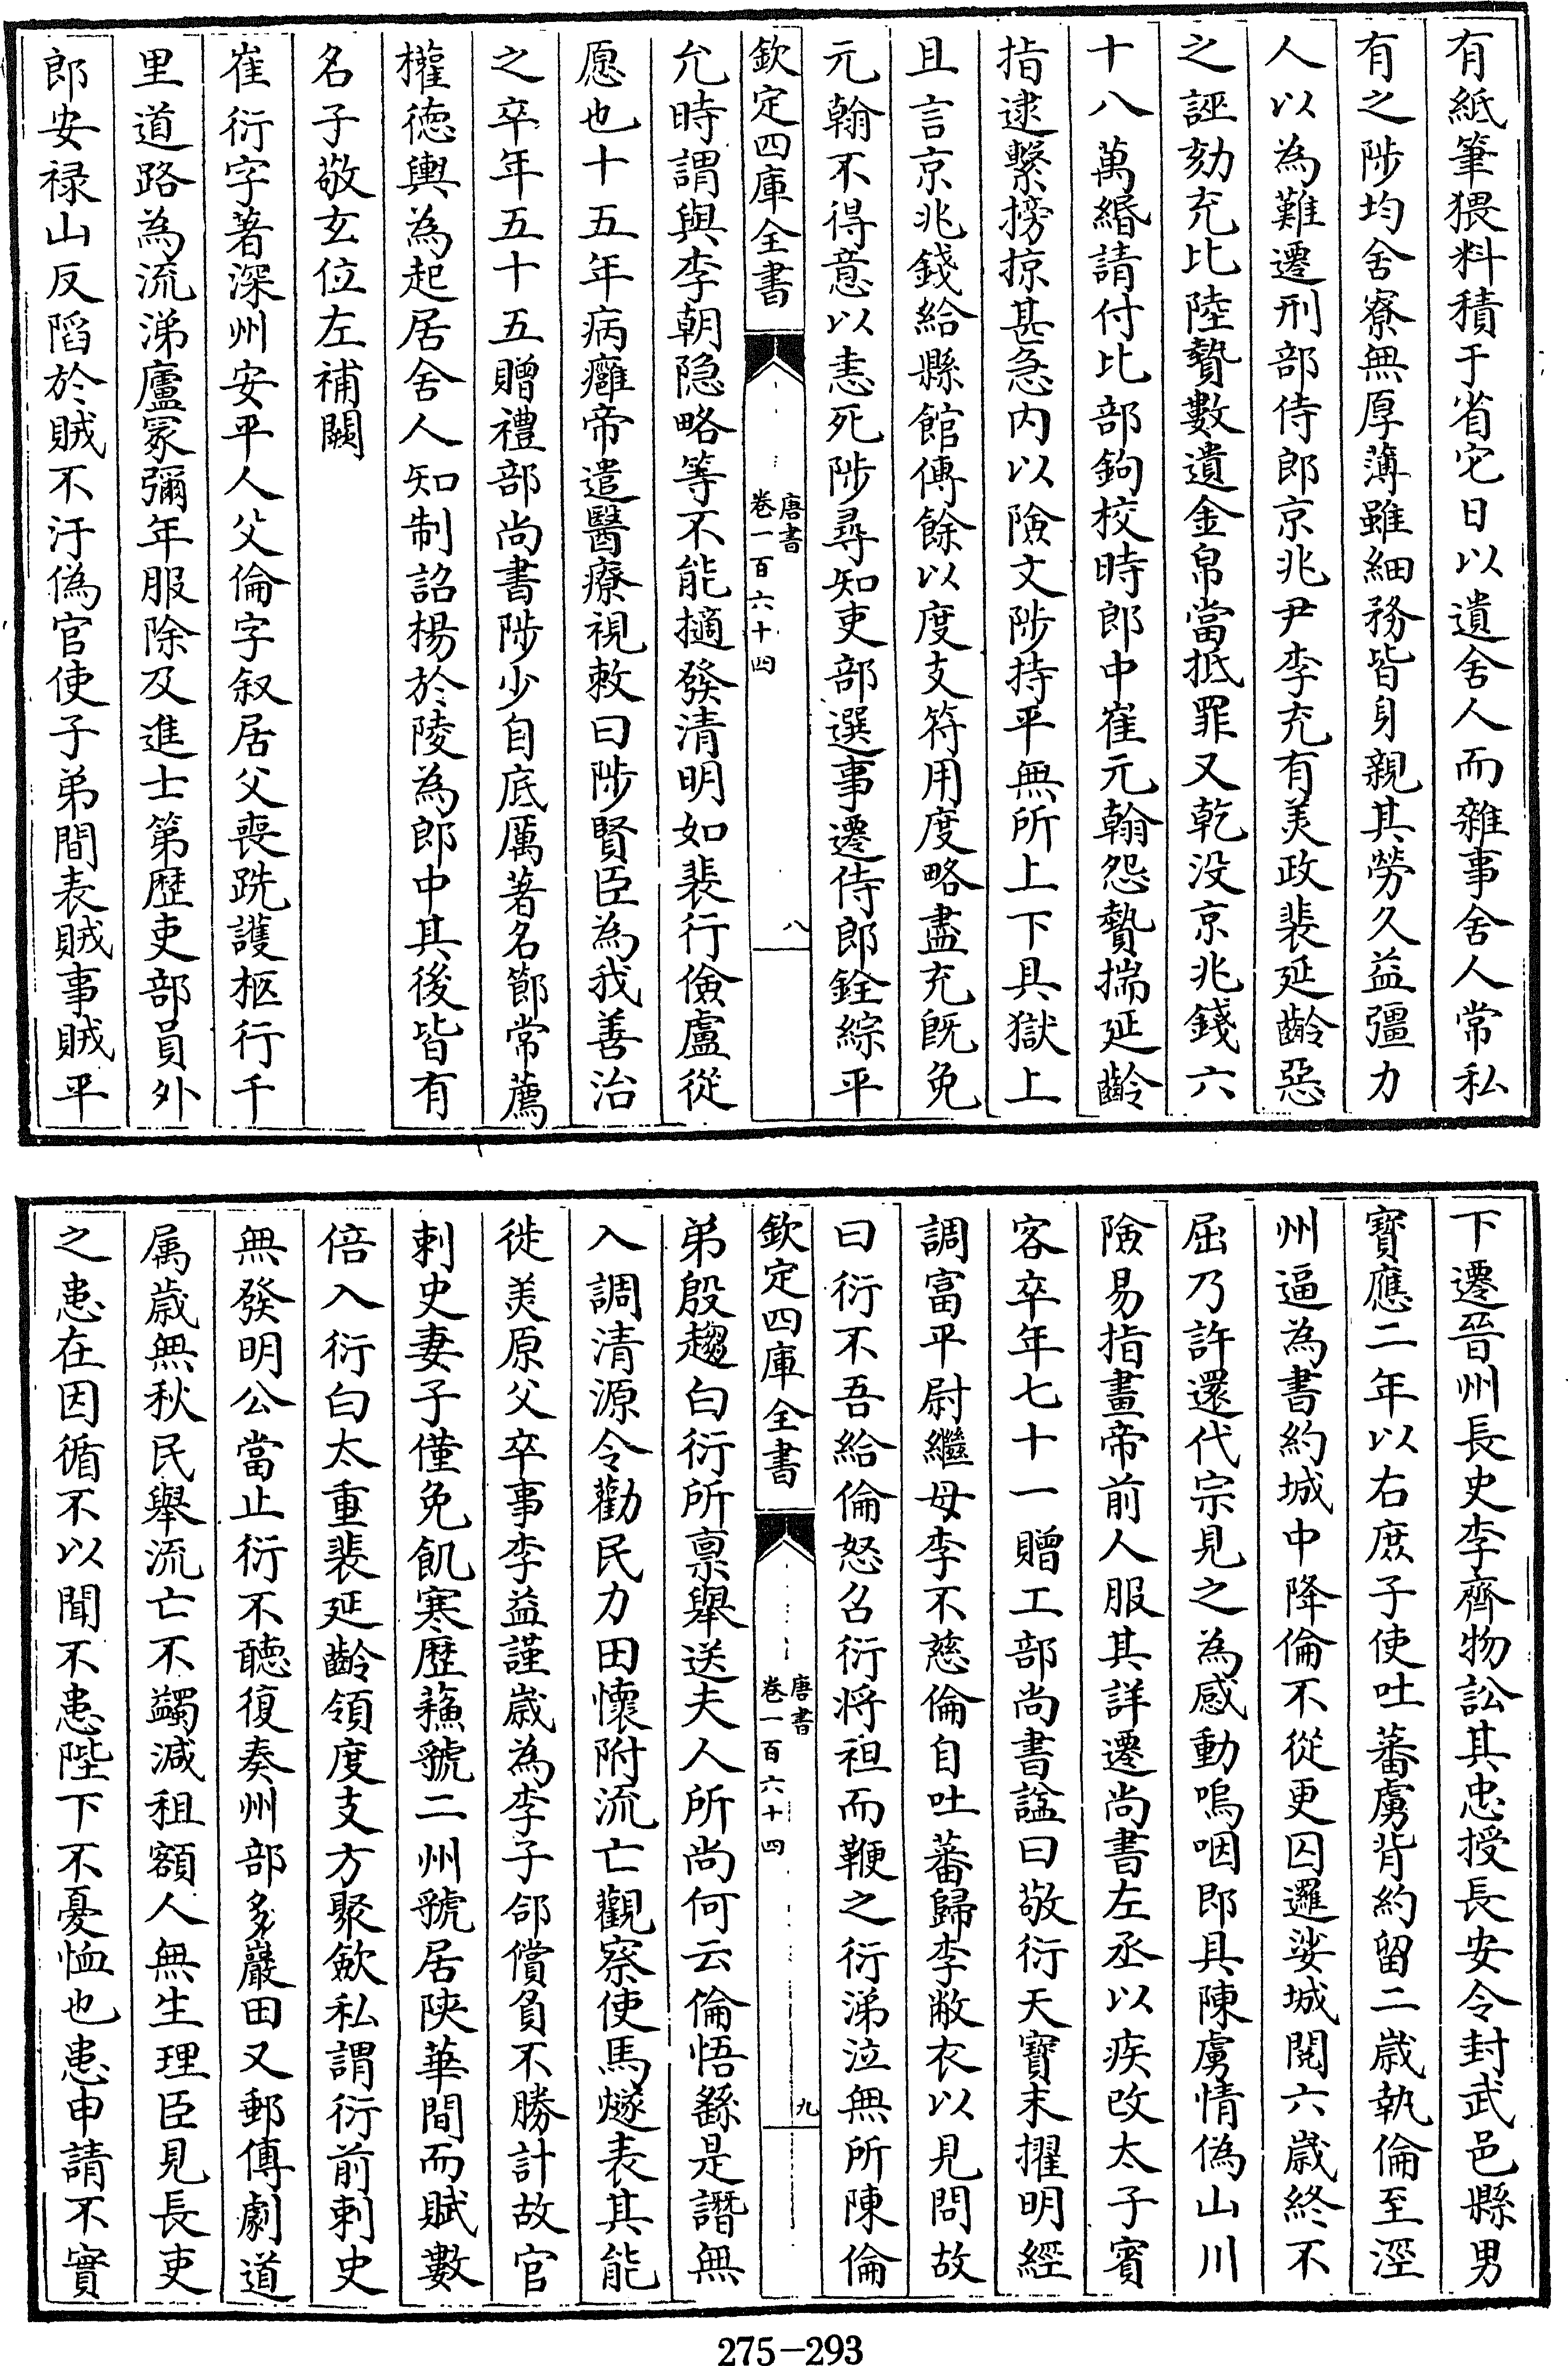 有紙筆猥料積于省它日以遺舍人而雜事舍人常私
有之陟均舍寮無厚薄雖細務皆身親其勞久益彊力
人以為難遷刑部侍郎京兆尹李充有美政裴延齡惡
之誣劾充比陸贄數遺金帛當抵罪又乾没京兆錢六
十八萬緡請付比部鉤校時郎中崔元翰怨贄揣延齡
指逮繫搒掠甚急内以險文陟持平無所上下具獄上
且言京兆錢給縣館傳餘以度支符用度略盡充既免
元翰不得意以恚死陟尋知吏部選事遷侍郎銓綜平
欽定四庫全書
唐書
卷一百六十四
八
允時謂與李朝隐略等不能擿發清明如裴行儉盧從
愿也十五年病癰帝遣醫療視敕曰陟賢臣為我善治
之卒年五十五贈禮部尚書陟少自底厲著名節常薦
權徳輿為起居舍人知制詔楊於陵為郎中其後皆有
名子敬玄位左補闕
崔衍字著深州安平人父倫字叙居父喪跣護柩行千
里道路為流涕廬冢彌年服除及進士第歴吏部員外
郎安禄山反陷於賊不汙偽官使子弟間表賊事賊平
下遷晉州長史李齊物訟其忠授長安令封武邑縣男
寶應二年以右庶子使吐蕃虜背約留二歲執倫至涇
州逼為書約城中降倫不從更囚邏娑城閱六歲終不
屈乃許還代宗見之為感動嗚咽即具陳虜情偽山川
險易指畫帝前人服其詳遷尚書左丞以疾改太子賓
客卒年七十一贈工部尚書諡曰敬衍天寶末擢明經
調富平尉繼母李不慈倫自吐蕃歸李敝衣以見問故
曰衍不吾給倫怒召衍将袒而鞭之衍涕泣無所陳倫
欽定四庫全書
唐書
卷一百六十四
九
弟殷趨白衍所禀舉送夫人所尚何云倫悟繇是譖無
入調清源令勸民力田懷附流亡觀察使馬燧表其能
徙美原父卒事李益謹歲為李子郃償負不勝計故官
刺史妻子僅免飢寒歴蘇虢二州虢居陝華間而賦數
倍入衍白太重裴延齡領度支方聚歛私謂衍前刺史
無發明公當止衍不聽復奏州部多巖田又郵傳劇道
属歲無秋民舉流亡不蠲減租額人無生理臣見長吏
之患在因循不以聞不患陛下不憂恤也患申請不實
275-293